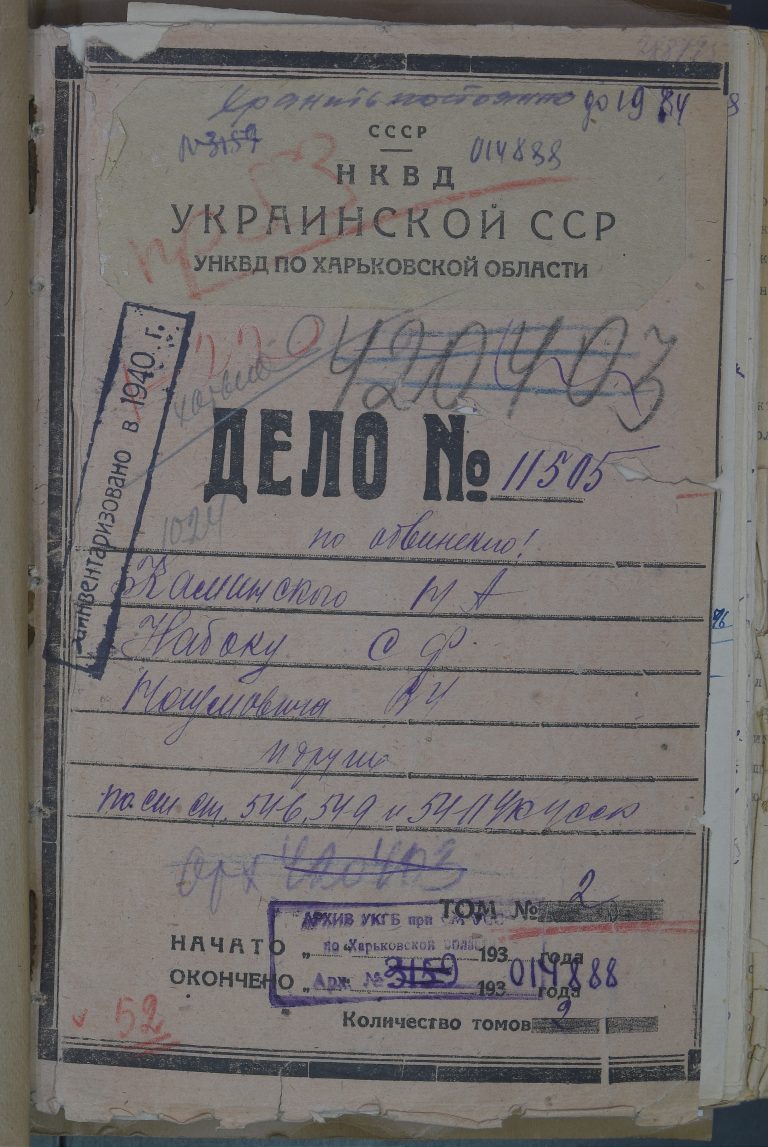 Хранить постоянно до 1984
СССР
№3159 014888
НКВД
УКРАИНСКОЙ ССР
УНКВД ПО ХАРЬКОВСКОЙ ОБЛАСТИ
420403
Заинвентаризовано в 1940 г.
ДЕЛО № 11505
1024
по обвинению:
Каминского
Набоку С Ф.
и другие
по ст ст. 54 УК УССР
арх 420403
ТОМ № 2
АРХИВ УКГБ при СМ УССР
по Харьковской области
НАЧАТО „ “ 193 года
ОКОНЧЕНО „ 193 года
Арх. № 3159 014888
Количество томов 2
52